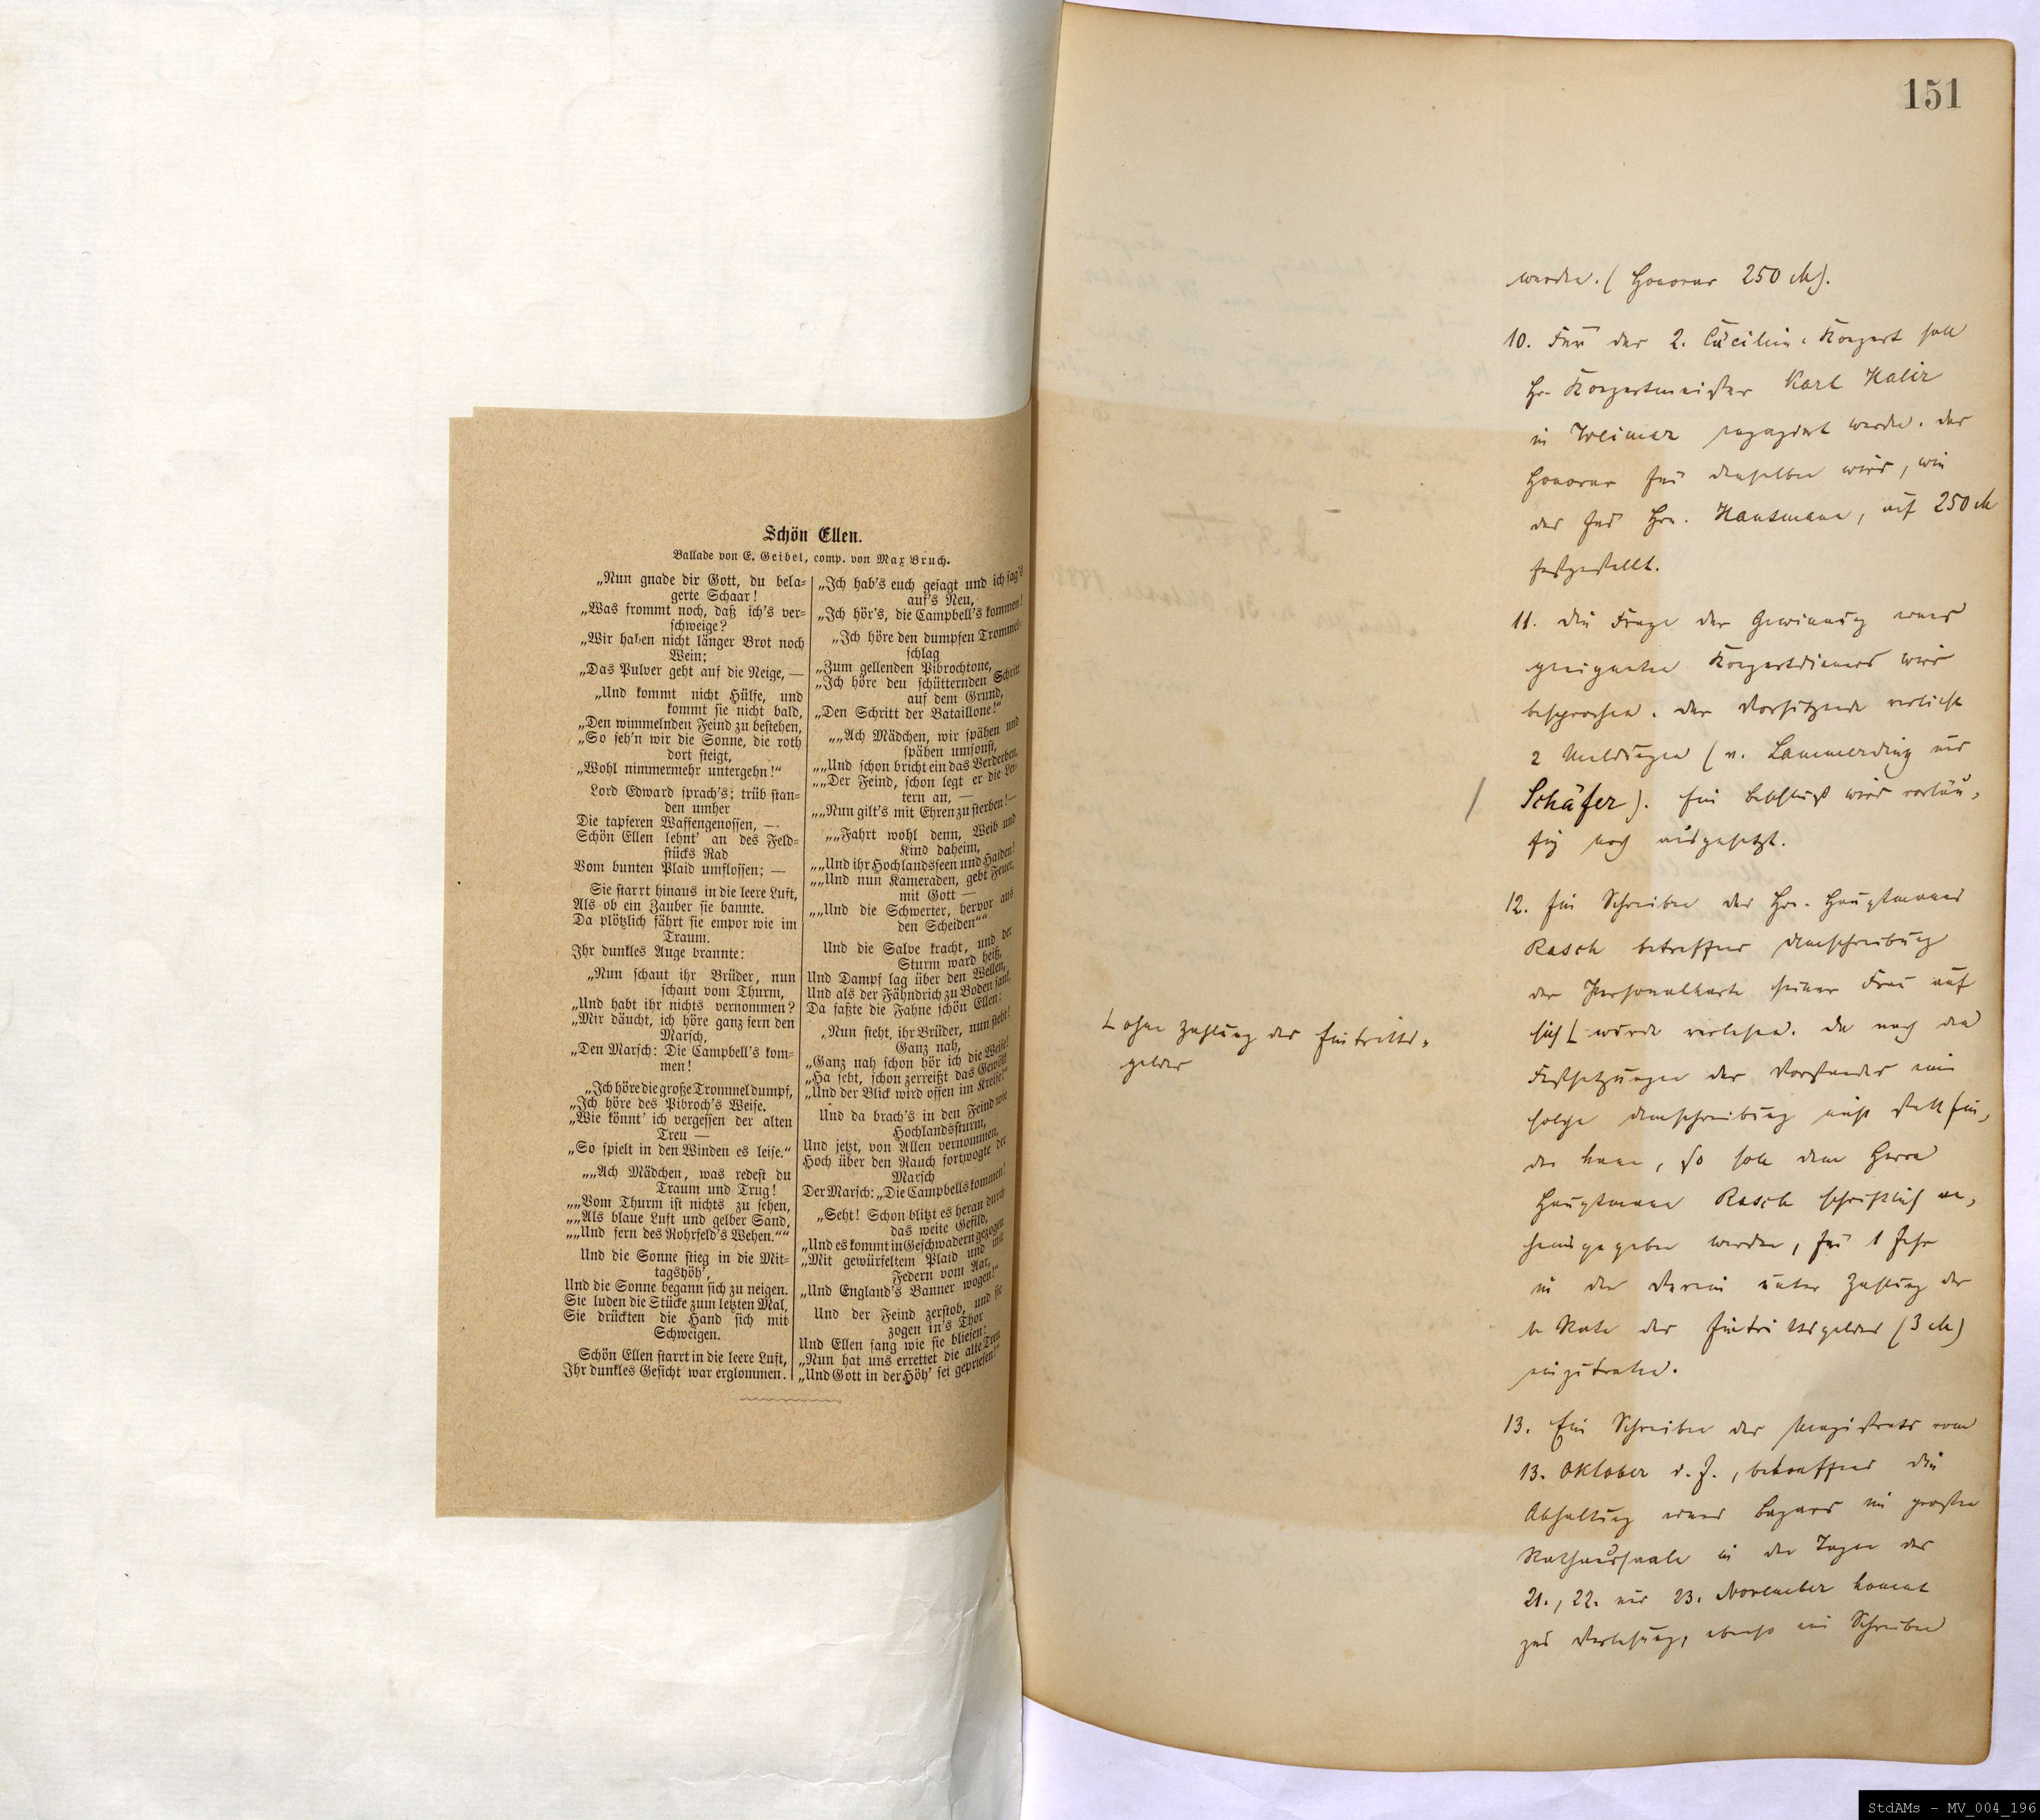 Schön Ellen.
Ballade von E. Geibel, comp. von Max Bruch.
„Nun gnade dir Gott, du bela-
gerte Schaar!
„Was frommt noch, daß ich's ver-
schweige?
„Wir haben nicht länger Brot noch
Wein;
„Das Pulver geht auf die Neige, —
„Und kommt nicht Hülfe, und
kommt sie nicht bald,
„Den wimmelnden Feind zu bestehen,
„So seh'n wir die Sonne, die roth
dort steigt,
„Wohl nimmermehr untergehn!“
Lord Edward sprach's; trüb stan-
den umher
Die tapferen Waffengenossen, —
Schön Ellen lehnt' an des Feld-
stücks Rad
Vom bunten Plaid umflossen; —
Sie starrt hinaus in die leere Luft,
Als ob ein Zauber sie bannte.
Da plötzlich fährt sie empor wie im
Traum.
Ihr dunkles Auge brannte:
„Nun schaut ihr Brüder, nun
schaut vom Thurm,
„Und habt ihr nichts vernommen?
„Mir däucht, ich höre ganz fern den
Marsch,
„Den Marsch: Die Campbell's kom-
men!
„Ich höre die große Trommel dumpf,
„Ich höre des Pibroch's Weise.
„Wie könnt' ich vergessen der alten
Treu —
„So spielt in den Winden es leise.“
„„Ach Mädchen, was redest du
Traum und Trug!
„„Vom Thurm ist nichts zu sehen,
„„Als blaue Luft und gelber Sand,
„„Und fern des Rohrfeld's Wehen.““
Und die Sonne stieg in die Mit-
tagshöh',
Und die Sonne begann sich zu neigen.
Sie luden die Stücke zum letzten Mal,
Sie drückten die Hand sich mit
Schweigen.
Schön Ellen starrt in die leere Luft,
Ihr dunkles Gesicht war erglommen.
„Ich hab's euch gesagt und ich sag's
auf's Neu,
„Ich hör's, die Campbell's kommen!
„Ich höre den dumpfen Trommel-
schlag
„Zum gellenden Pibrochtone,
„Ich höre den schütternden Schritt
auf dem Grund,
„Den Schritt der Bataillone!“
„„Ach Mädchen, wir spähen und
spähen umsonst,
„„Und schon bricht ein das Verderben.
„„Der Feind, schon legt er die Lei-
tern an, —
„„Nun gilt's mit Ehren zu sterben! —
„„Fahrt wohl denn, Weib und
Kind daheim,
„„Und ihr Hochlandsseen und Haiden!
„„Und nun Kameraden, gebt Feuer,
mit Gott —
„„Und die Schwerter, hervor aus
den Scheiden““
Und die Salve kracht, und der
Sturm ward heiß,
Und Dampf lag über den Wellen,
Und als der Fähndrich zu Boden sank,
Da faßte die Fahne schön Ellen:
„Nun steht, ihr Brüder, nun steht!
Ganz nah,
„Ganz nah schon hör ich die Weise!
„Ha seht, schon zerreißt das Gewölk
„Und der Blick wird offen im Kreise!“
Und da brach's in den Feind wie
Hochlandssturm,
Und jetzt, von Allen vernommen,
Hoch über den Rauch fortwogte der
Marsch
Der Marsch: „Die Campbells kommen!
„Seht! Schon blitzt es heran durch
das weite Gefild,
„Und es kommt in Geschwadern gezogen
„Mit gewürfeltem Plaid und mit
Federn vom Aar,
„Und England's Banner wogen!“
Und der Feind zerstob, und sie
zogen in's Thor
Und Ellen sang wie sie bliesen:
„Nun hat uns errettet die alte Treu
„Und Gott in der Höh' sei gepriesen!“
151
werden. (Honorar 250 M).
10. Für das 2. Cäcilien-Konzert soll
Hr. Konzertmeister Karl Halir
in Weimar engagirt werden. Das
Honorar für denselben wird, wie
das für Hrn. Hausmann, auf 250 M
festgestellt.
11. Die Frage der Gewinnung eines
geeigneten Konzertdieners wird
besprochen. Der Vorsitzende verliest
2 Meldungen (v. Lammerding und
Schäfer). Ein Beschluß wird vorläu-
fig noch ausgesetzt.
12. Ein Schreiben des Hrn. Hauptmanns
Rasch betreffend Umschreibung
der Personalkarte seiner Frau auf
sich ⌊ wurde verlesen. Da nach den
⌊ ohne Zahlung des Eintritts-
geldes
Festsetzungen des Vorstandes eine
solche Umschreibung nicht stattfin-
den kann, so soll dem Herrn
Hauptmann Rasch schriftlich an-
heimgegeben werden, für 1 Jahr
in den Verein unter Zahlung der
1. Rate des Eintrittsgeldes (3 M)
einzutreten.
13. Ein Schreiben des Magistrats vom
13. Oktober d. J., betreffend die
Abhaltung eines Bazars im großen
Rathaussaale in den Tagen des
21., 22. und 23. November kommt
zur Verlesung, ebenso ein Schreiben
StdAMs - MV_004_196